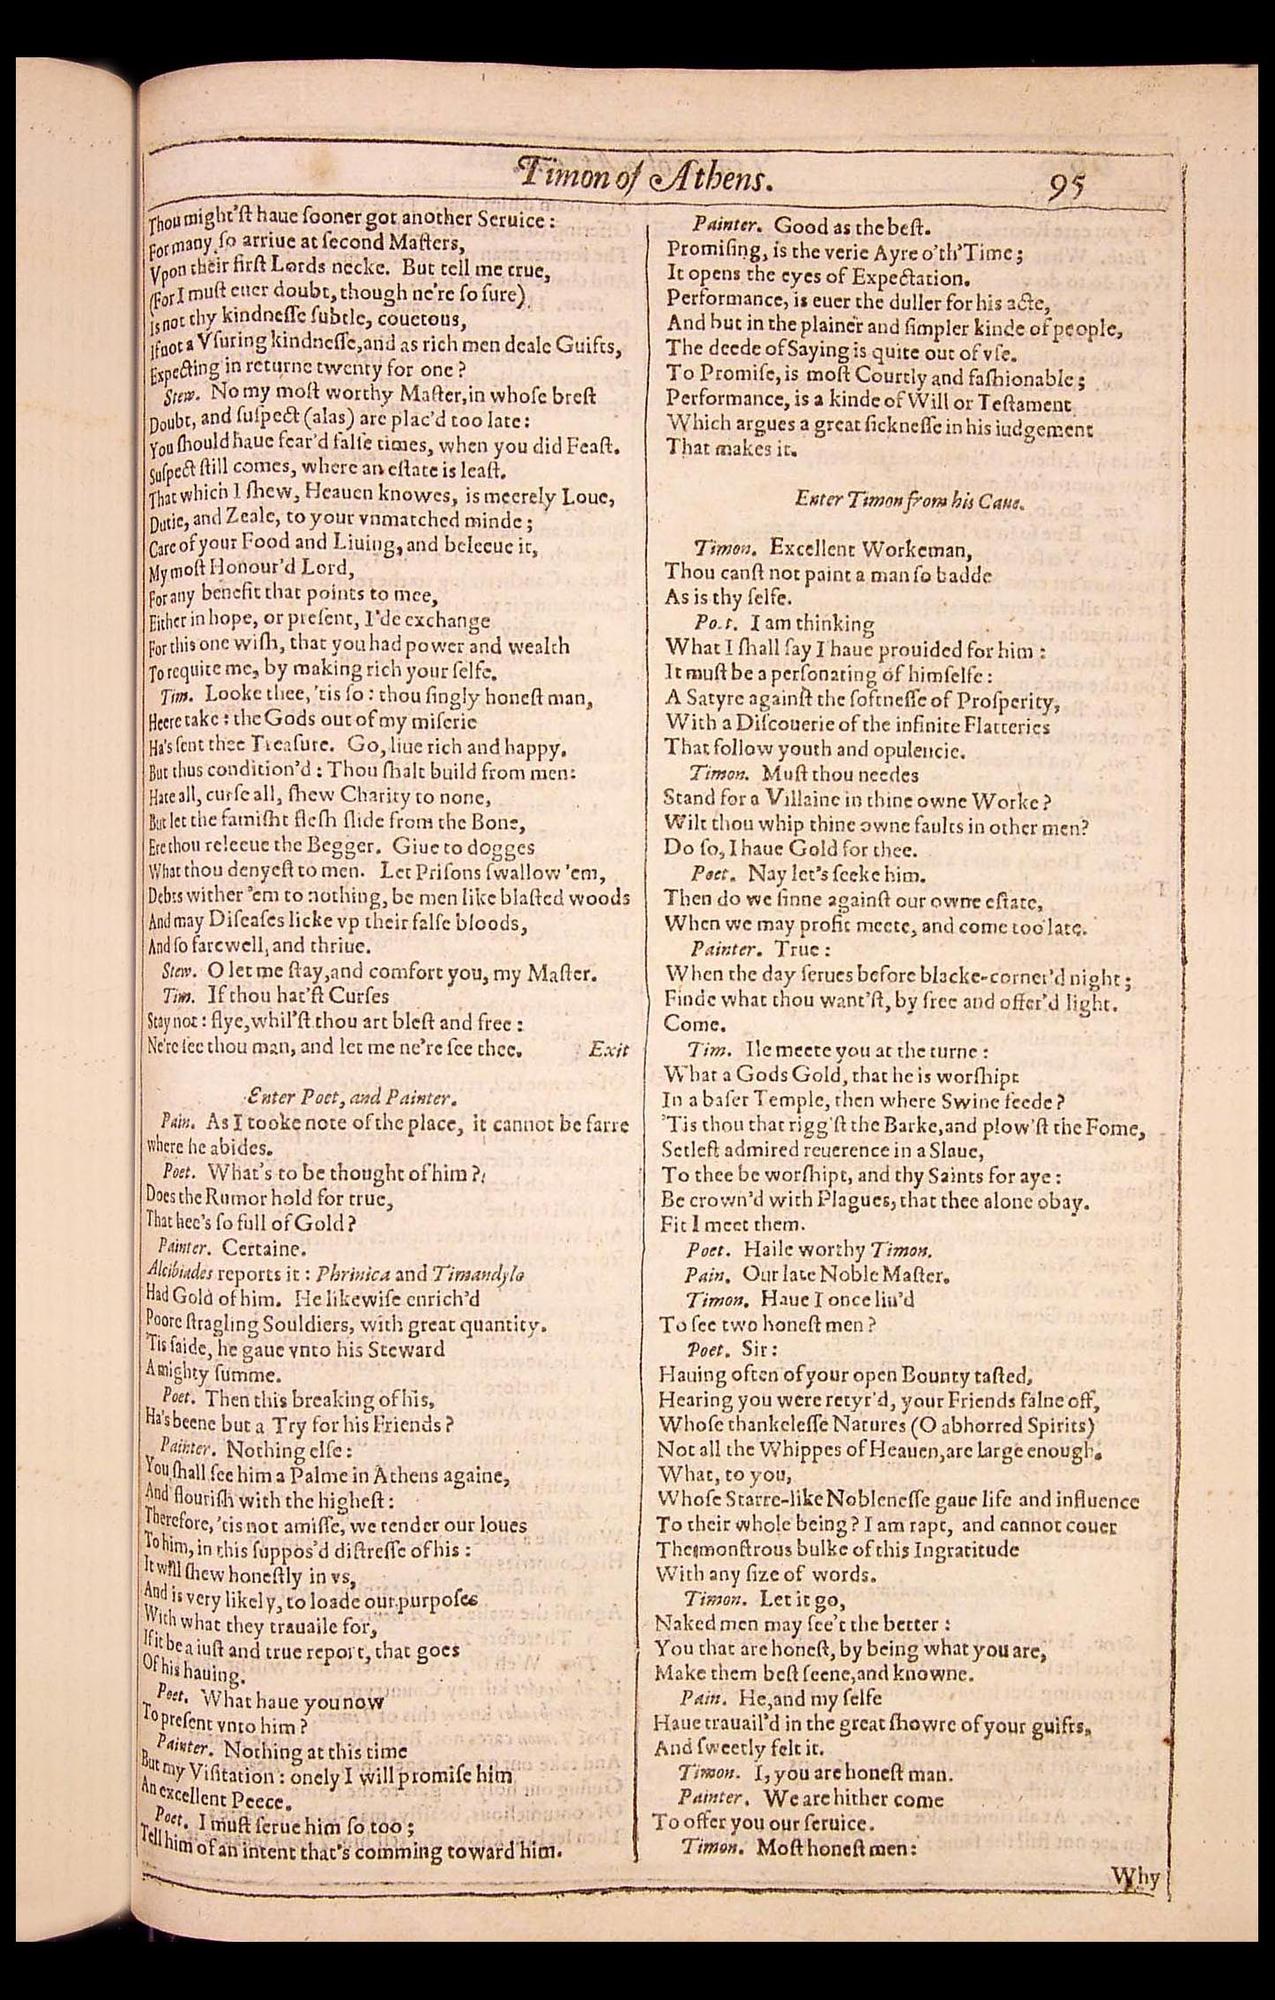 Timon of Athens. 95
Thou might'ſt haue ſooner got another Seruice:
For many ſo arriue at ſecond Maſters,
Vpon their firſt Lords necke. But tell me true,
(For I muſt euer doubt, though ne're ſo ſure)
Is not thy kindneſſe ſubtle, couetous,
If not a Vſuring kindneſſe, and as rich men deale Guifts,
Expecting in returne twenty for one?
Stew. No my moſt worthy Maſter, in whoſe breſt
Doubt, and ſuſpect (alas) are plac'd too late:
You ſhould haue fear'd falſe times, when you did Feaſt.
Suſpect ſtill comes, where an eſtate is leaſt.
That which I ſhew, Heauen knowes, is meerely Loue,
Dutie, and Zeale, to your vnmatched minde;
Care of your Food and Liuing, and beleeue it,
My moſt Honour'd Lord,
For any benefit that points to mee,
Either in hope, or preſent, I'de exchange
For this one wiſh, that you had power and wealth
To requite me, by making rich your ſelfe.
Tim. Looke thee, 'tis ſo: thou ſingly honeſt man,
Heere take: the Gods out of my miſerie
Ha's ſent thee Treaſure. Go, liue rich and happy,
But thus condition'd: Thou ſhalt build from men:
Hate all, curſe all, ſhew Charity to none,
But let the famiſht fleſh ſlide from the Bone,
Ere thou releeue the Begger. Giue to dogges
What thou denyeſt to men. Let Priſons ſwallow 'em,
Debts wither 'em to nothing, be men like blaſted woods
And may Diſeaſes licke vp their falſe bloods,
And ſo farewell, and thriue.
Stew. O let me ſtay, and comfort you, my Maſter.
Tim. If thou hat'ſt Curſes
Stay not: flye, whil'ſt thou art bleſt and free:
Ne're ſee thou man, and let me ne're ſee thee. Exit
Enter Poet, and Painter.
Pain. As I tooke note of the place, it cannot be farre
where he abides.
Poet. What's to be thought of him?
Does the Rumor hold for true,
That hee's ſo full of Gold?
Painter. Certaine.
Alcibiades reports it: Phrinica and Timandylo
Had Gold of him. He likewiſe enrich'd
Poore ſtragling Souldiers, with great quantity.
'Tis ſaide, he gaue vnto his Steward
A mighty ſumme.
Poet. Then this breaking of his,
Ha's beene but a Try for his Friends?
Painter. Nothing elſe:
You ſhall ſee him a Palme in Athens againe,
And flouriſh with the higheſt:
Therefore, 'tis not amiſſe, we tender our loues
To him, in this ſuppos'd diſtreſſe of his:
It will ſhew honeſtly in vs,
And is very likely, to loade our purpoſes
With what they trauaile for,
If it be a iuſt and true report, that goes
Of his hauing.
Poet. What haue you now
To preſent vnto him?
Painter. Nothing at this time
But my Viſitation: onely I will promiſe him
An excellent Peece.
Poet. I muſt ſerue him ſo too;
Tell him of an intent that's comming toward him.
Painter. Good as the beſt.
Promiſing, is the verie Ayre o'th'Time;
It opens the eyes of Expectation.
Performance, is euer the duller for his acte,
And but in the plainer and ſimpler kinde of people,
The deede of Saying is quite out of vſe.
To Promiſe, is moſt Courtly and faſhionable;
Performance, is a kinde of Will or Teſtament
Which argues a great ſickneſſe in his iudgement
That makes it.
Enter Timon from his Caue.
Timon. Excellent Workeman,
Thou canſt not paint a man ſo badde
As is thy ſelfe.
Poet. I am thinking
What I ſhall ſay I haue prouided for him:
It muſt be a perſonating of himſelfe:
A Satyre againſt the ſoftneſſe of Proſperity,
With a Diſcouerie of the infinite Flatteries
That follow youth and opulencie.
Timon. Muſt thou needes
Stand for a Villaine in thine owne Worke?
Wilt thou whip thine owne faults in other men?
Do ſo, I haue Gold for thee.
Poet. Nay let's ſeeke him.
Then do we ſinne againſt our owne eſtate,
When we may profit meete, and come too late.
Painter. True:
When the day ſerues before blacke-corner'd night;
Finde what thou want'ſt, by free and offer'd light.
Come.
Tim. Ile meete you at the turne:
What a Gods Gold, that he is worſhipt
In a baſer Temple, then where Swine feede?
'Tis thou that rigg'ſt the Barke, and plow'ſt the Fome,
Setleſt admired reuerence in a Slaue,
To thee be worſhipt, and thy Saints for aye:
Be crown'd with Plagues, that thee alone obay.
Fit I meet them.
Poet. Haile worthy Timon.
Pain. Our late Noble Maſter.
Timon. Haue I once liu'd
To ſee two honeſt men?
Poet. Sir:
Hauing often of your open Bounty taſted,
Hearing you were retyr'd, your Friends falne off,
Whoſe thankeleſſe Natures (O abhorred Spirits)
Not all the Whippes of Heauen, are large enough.
What, to you,
Whoſe Starre-like Nobleneſſe gaue life and influence
To their whole being? I am rapt, and cannot couer
The monſtrous bulke of this Ingratitude
With any ſize of words.
Timon. Let it go,
Naked men may ſee't the better:
You that are honeſt, by being what you are,
Make them beſt ſeene, and knowne.
Pain. He, and my ſelfe
Haue trauail'd in the great ſhowre of your guifts,
And ſweetly felt it.
Timon. I, you are honeſt man.
Painter. We are hither come
To offer you our ſeruice.
Timon. Moſt honeſt men:
Why